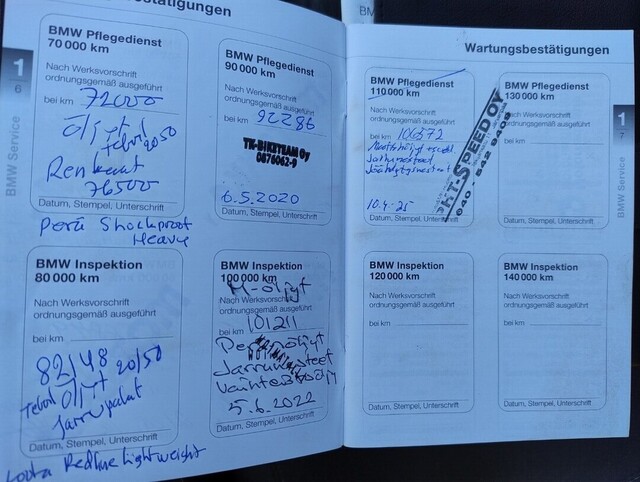 bestätigungen
BMW Pflegedienst
70 000 km
Nach Werksvorschrift
ordnungsgemäß ausgeführt
bei km 72000
Öljyt
Teboil 20/50
Renkaat
76500
Datum, Stempel, Unterschrift
Perä Shockproof
Heavy
BMW Inspektion
80 000 km
Nach Werksvorschrift
ordnungsgemäß ausgeführt
bei km
82148 20/50
Teboil Öljyt
Jarrupalat
Datum, Stempel, Unterschrift
Redline Lightweight
1
6
BMW Service
BMW Pflegedienst
90 000 km
Nach Werksvorschrift
ordnungsgemäß ausgeführt
bei km 92286
TK-BIKETEAM Oy
0876062-9
6.5.2020
Datum, Stempel, Unterschrift
BMW Inspektion
100 000 km
M-öljyt
Nach Werksvorschrift
ordnungsgemäß ausgeführt
bei km 101211
Peräöljyt
Jarrunesteet
Vaihteistoöljy
5.6.2022
Datum, Stempel, Unterschrift
BM
Wartungsbestätigungen
BMW Pflegedienst
110 000 km
Nach Werksvorschrift
ordnungsgemäß ausgeführt
bei km 106572
Jarrunesteet
Jäähdytysnesteet
10.4-25
Datum, Stempel, Unterschrift
HT-SPEED OY
040 - 542 9409
BMW Pflegedienst
130 000 km
Nach Werksvorschrift
ordnungsgemäß ausgeführt
Datum, Stempel, Unterschrift
BMW Inspektion
120 000 km
Nach Werksvorschrift
ordnungsgemäß ausgeführt
bei km
Datum, Stempel, Unterschrift
BMW Inspektion
140 000 km
Nach Werksvorschrift
ordnungsgemäß ausgeführt
bei km
Datum, Stempel, Unterschrift
1
BMW Service